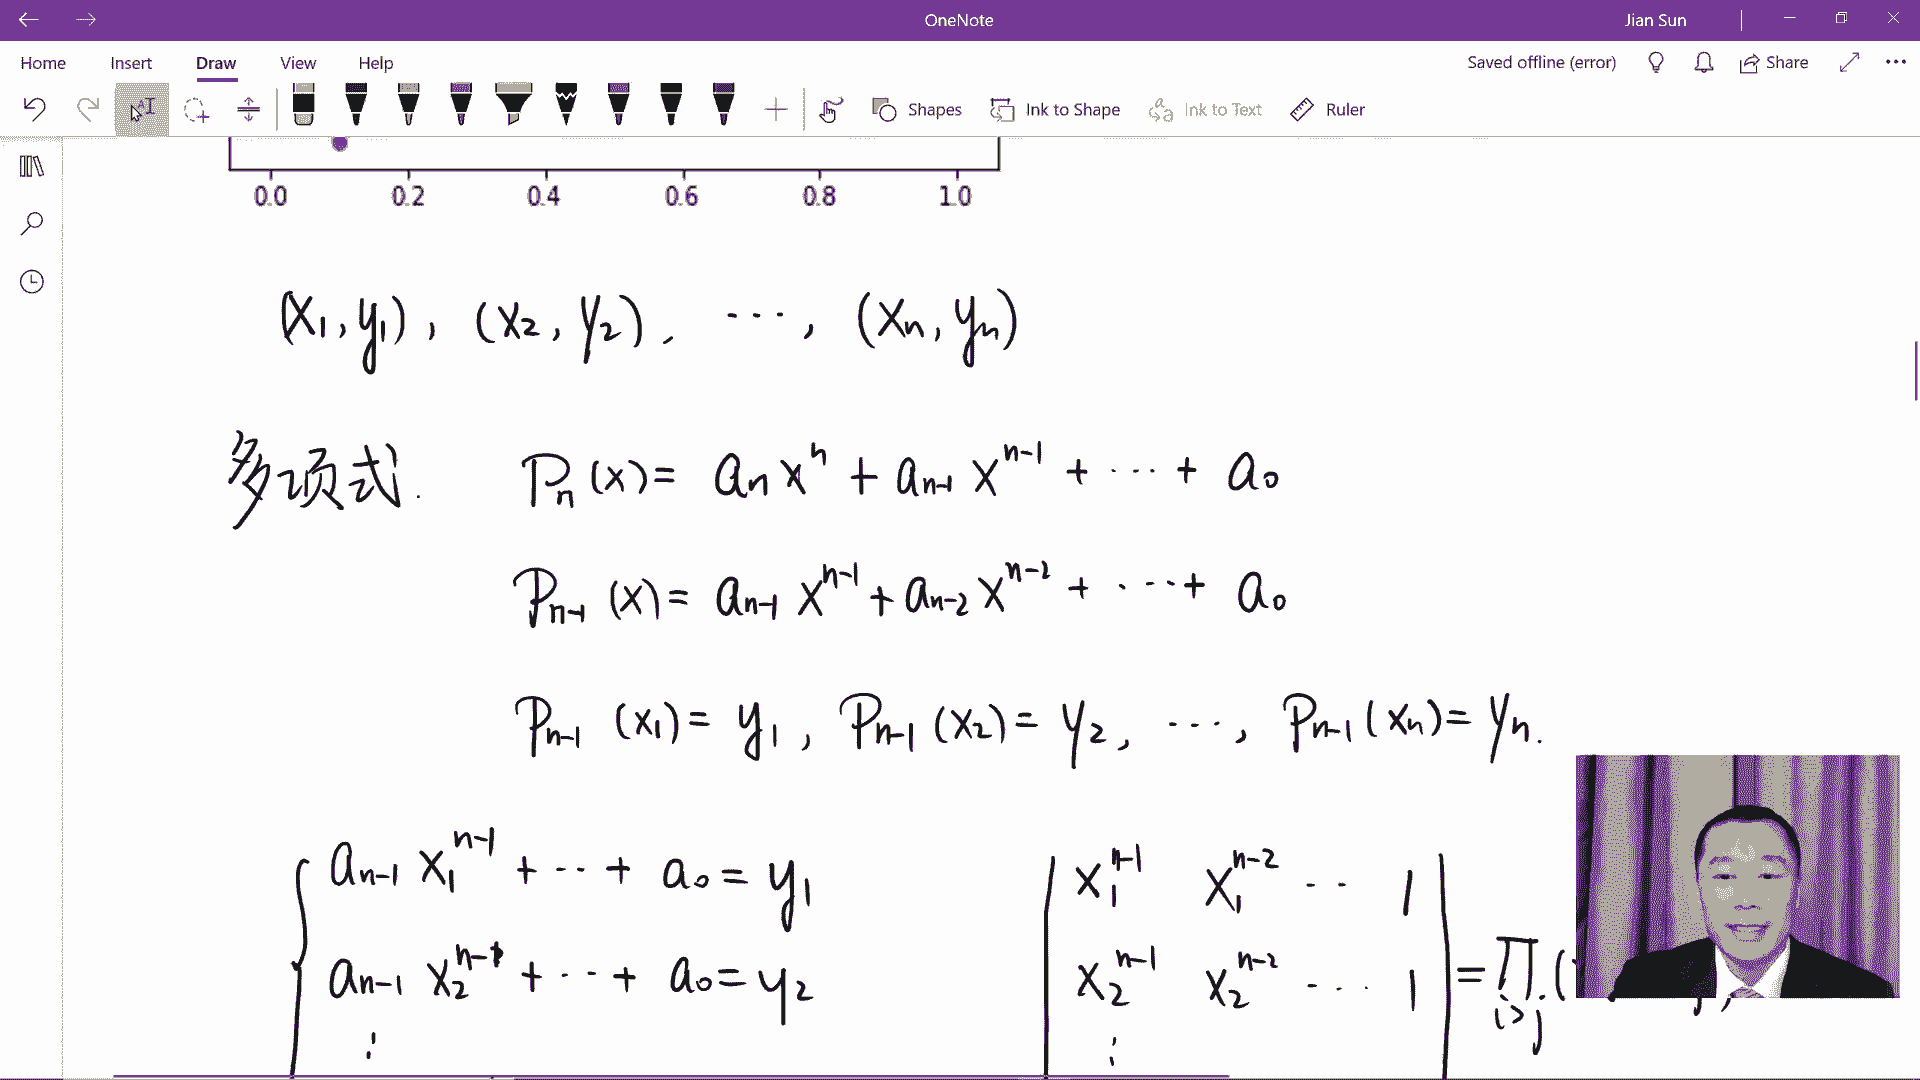 OneNote
Jian Sun
Home Insert Draw View Help
Saved offline (error) Share
Shapes Ink to Shape Ink to Text Ruler
0.0 0.2 0.4 0.6 0.8 1.0
(x₁, y₁), (x₂, y₂), ⋯, (xₙ, yₙ)
多项式. Pₙ(x) = aₙxⁿ + aₙ₋₁xⁿ⁻¹ + ⋯ + a₀
Pₙ₋₁(x) = aₙ₋₁xⁿ⁻¹ + aₙ₋₂xⁿ⁻² + ⋯ + a₀
Pₙ₋₁(x₁) = y₁, Pₙ₋₁(x₂) = y₂, ⋯, Pₙ₋₁(xₙ) = yₙ.
aₙ₋₁x₁ⁿ⁻¹ + ⋯ + a₀ = y₁
aₙ₋₁x₂ⁿ⁻¹ + ⋯ + a₀ = y₂
⋮
x₁ⁿ⁻¹ x₁ⁿ⁻² ⋯ 1
x₂ⁿ⁻¹ x₂ⁿ⁻² ⋯ 1 = ∏ i>j (
⋮